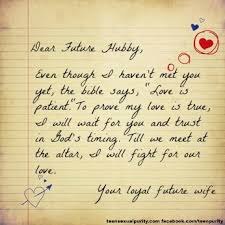 Dear Future Hubby,
Even though I haven't met you
yet, the bible says, "Love is
patient." To prove my love is true,
I will wait for you and trust
in God's timing. Till we meet at
the altar, I will fight for our
love.
Your loyal future wife
teensexualpurity.com facebook.com/teenpurity